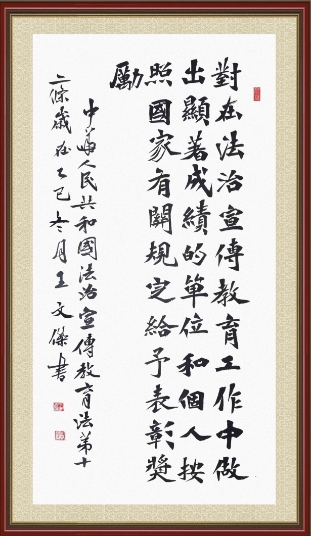 對在法治宣傳教育工作中做
出顯著成績的單位和個人按
照國家有關規定給予表彰獎
勵
中華人民共和國法治宣傳教育法第十
二條歲在乙巳冬月王文傑書